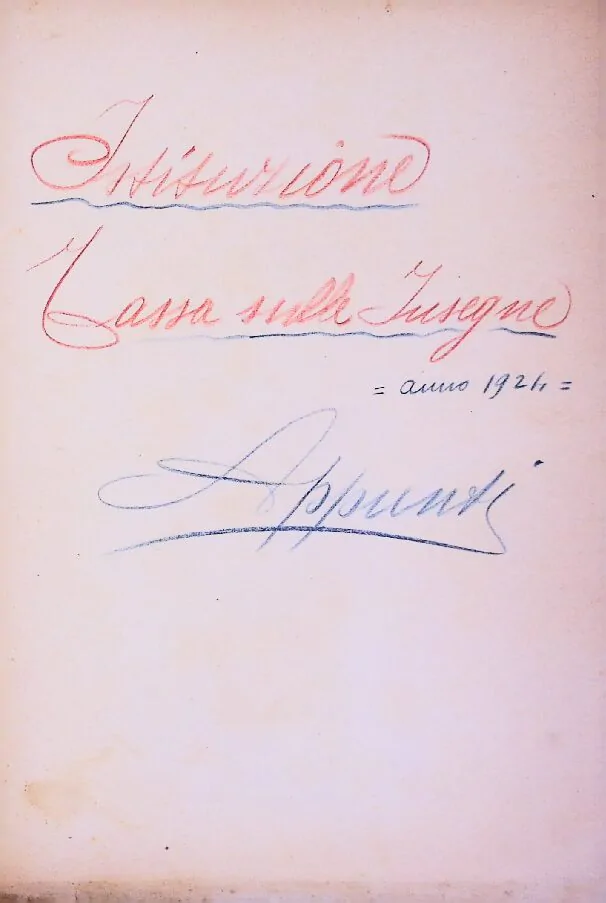 Istituzione
Tassa sulle Insegne
= anno 1924 =
Appunti